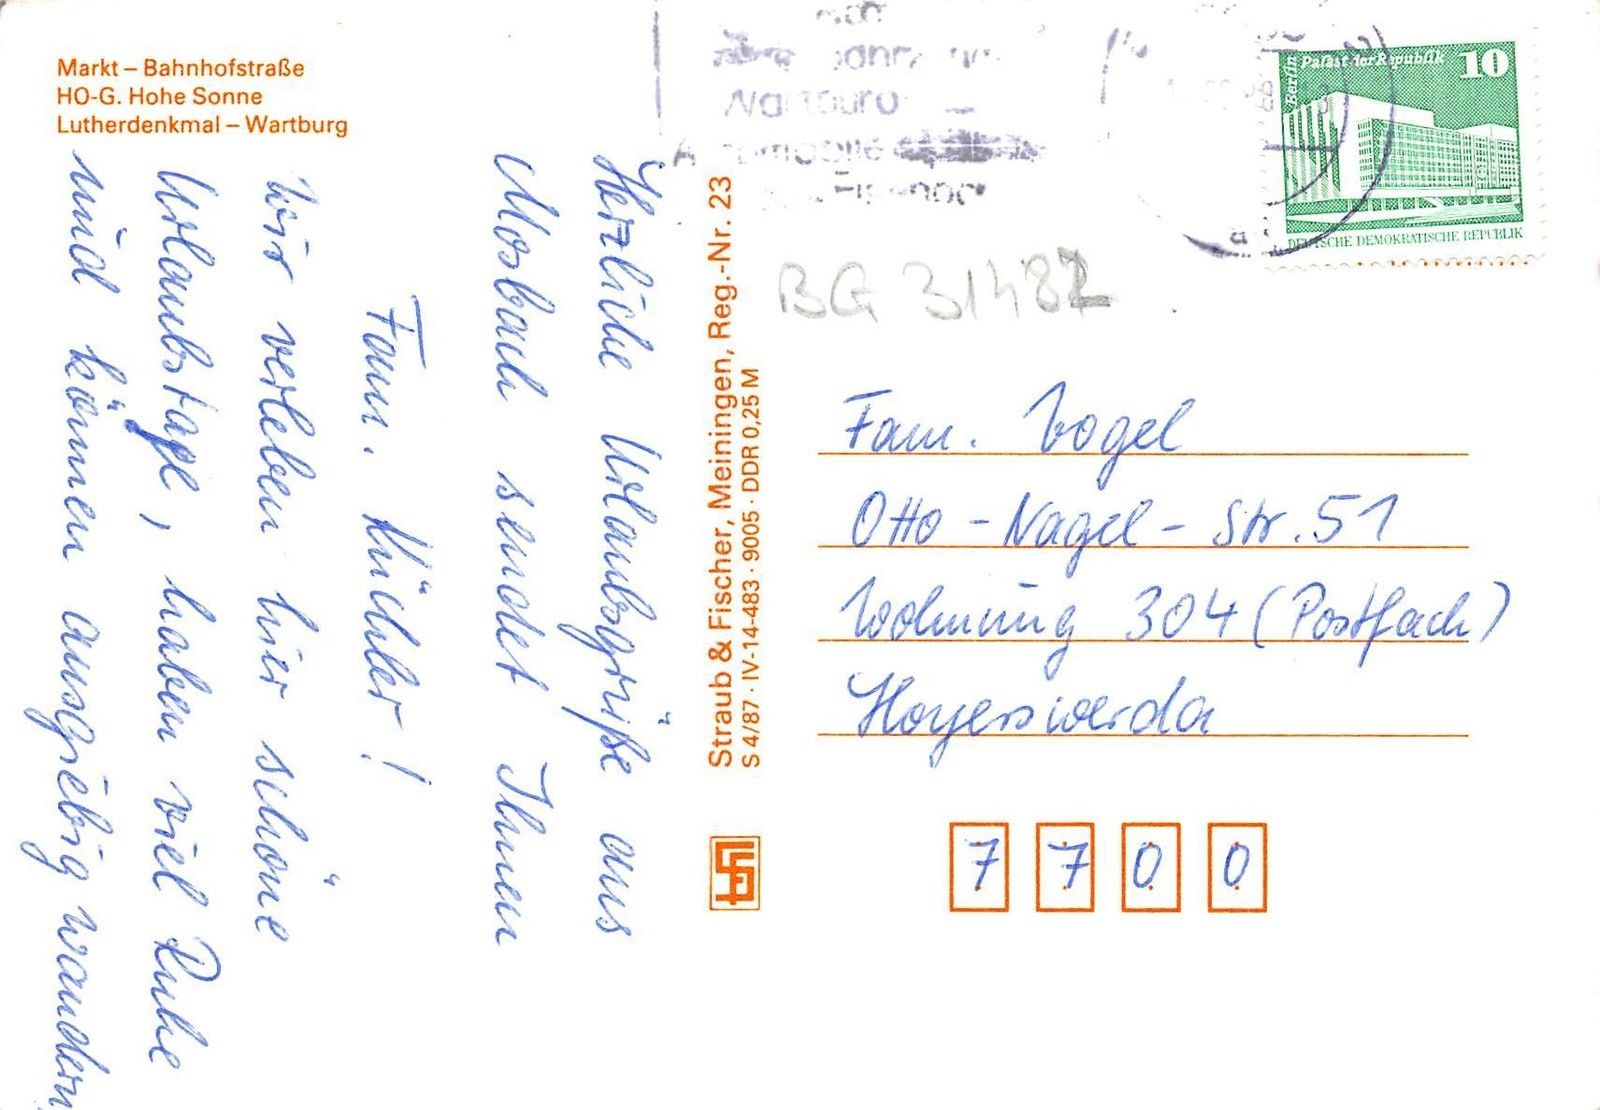 Markt – Bahnhofstraße
HO-G. Hohe Sonne
Lutherdenkmal – Wartburg
Herzliche Urlaubsgrüße aus
Mosbach sendet Ihnen
Fam. Küchler!
Wir verleben hier schöne
Urlaubstage, haben viel Ruhe
und können ausgiebig wandern
Straub & Fischer, Meiningen, Reg.-Nr. 23
S 4/87 · IV-14-483 · 9005 · DDR 0,25 M
Wartburg
Automobile
Berlin
Palast der Republik
10
DEUTSCHE DEMOKRATISCHE REPUBLIK
BG 31482
Fam. Vogel
Otto-Nagel-Str. 51
Wohnung 304 (Postfach)
Hoyerswerda
7700